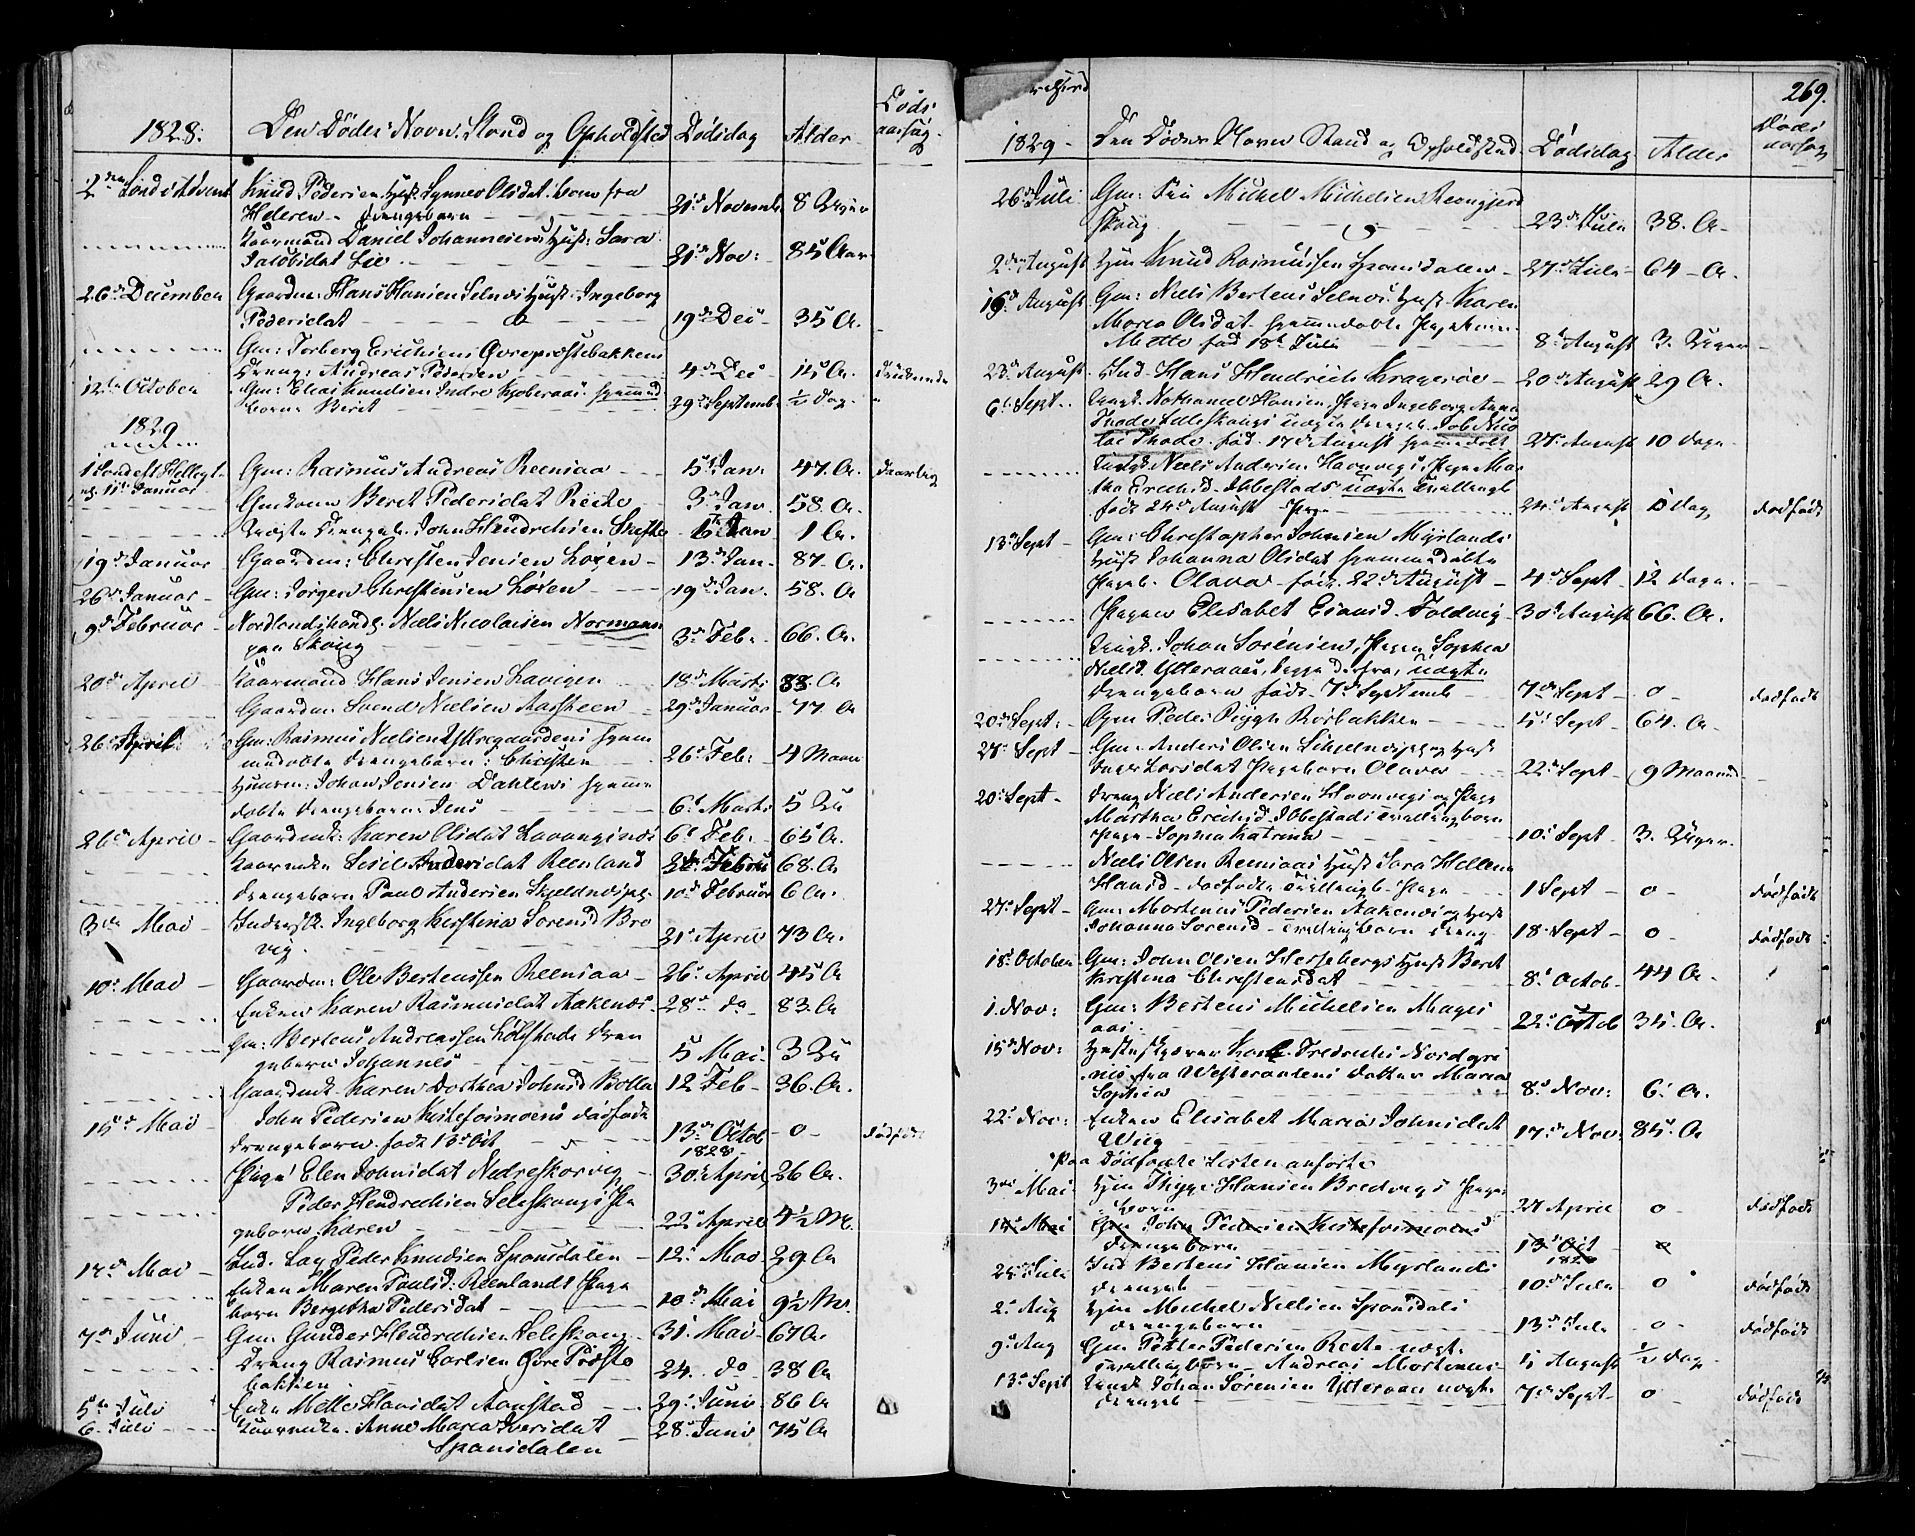 1828.
Den Dødes Navn, Stand og Opholdsted
Dødsdag
Alder
Døds aarsag.
2den Sønd: i Advent Knud Pedersens Hust. Synnev Olsdat: barn fra
Hderen - Drengebarn 21de Novemb. 8 Uger
Kaarmand Daniel Johannesens Hust: Sara
Jacobsdat Lie 21de Nov: 85 Aar
26de December Gaardm: Hans Hansen Selnæs Hust: Ingeborg
Pedersdat 19de Dec 35 A.
Gm: Torberg Erichsens Øvreprestebakkens
Dreng: Andreas Pedersen 4de Dec 15 A. Druknede
12te October Gm: Elias Knudsen Indre Kjoberaas: hjemmed
barn: Beret 29de Septemb. ½ Dag.
1829
1 Sønd: eft Helligt.
11te Januar Gm: Rasmus Andreas Reensaa 5te Jan: 47. A.
Gmkone Beret Pedersdat Røike 3de Jan 58. A.
Uægte Drengeb. John Hendrichsen Skifte 6te Jan 1 A.
19de Januar Gaardm: Christen Jensen Løxen 13de Jan. 87. A.
26de Januar Gm: Jørgen Christensen Løxen 19de Jan. 58. A
9de Februar Nordlandshandl: Niels Nicolaisen Normann
paa Skoug 3de Feb. 66. A.
20de April Kaarmand Hans Jensen Lavigen 18de Marts 88 A
Gaardm: Svend Nielsen Aarsteen 29de Januar 77. A
26de April Gm: Rasmus Nielsen Ytregaardens hjem
medøbte Drengebarn: Christen 26de Feb: 4 Maan
Huusm: Johan Jensen Dahlens hjemme
døbte Drengebarn: Jens 6te Marts 5 Ug
26de April Gaardmk: Karen Olsdat Lavangsnæs 6te Feb: 65 A.
Kaarenke Sisil Andersdat Reenland Febru 68. A
Drengebarn Paul Andersen Skjelnesjye 10de Februar 6 A.
3die Mai Inderstk. Ingeborg Kirstina Sørensd Bro
vig. 21de April 73 A.
10de Mai Gaardm: Ole Bertensen Reensaa 26de April 45 A
Enken Karen Rasmusdat Aakenæs 28de do 83. A
Gm: Bertens Andreassen Løkstads Dren
gebarn Johannes 5 Mai 3 Ug
Gaardmk. Karen Dorthea Johnsd Bolla 12te Feb 36. A.
15de Mai John Pedersen Kistefosmoens dødfødt
Drengebarn. født 13de Oct 13de Octob 1828 -0- dødfødt
Pige Elen Johnsdat Nedreskorvig 30te April 26 A.
Peder Hendrichsen Seleskougs Pi
gebarn Karen 22de April 4½ M.
17de Mai Ind. Lars Peder Knudsen Spansdalen 12te Mai 29. A
Enken Maren Paulsd: Reenlands Pige
barn Bergitha Pedersdat 10de Mai 9½ M.
7de Juni Gm Gunder Hendrichsen Seleskoug 31te Mai 67 A
Dreng Rasmus Carlsen Øvre Preste
bakken 24. do 38 A
5te Juli Enke Mette Hansdat Aanstad 29de Juni 86 A
6. Juli Kaarenke. Anne Maria Iversdat
Spansdalen 28de Juni 75 A
269.
1829 - Den Dødes Navn Stand og Opholdsted. Dødsdag Alder Døds aarsag
26de Juli Gm: Sin Michel Michelsen Reengjerd
Skoug 23de Juli 38. A.
2den August Hm Knud Rasmussen Spansdalen 27de Juli 64 A.
16de August Gm: Niels Bertens Selnæs Hust. Karen
Maria Olsdat hjemmedøbte Pigebarn
Mette fød 18de Juli 8de August 3. Uger
23de August Ind. Hans Hendrich Kragerøe 20de August 29 A.
6te Sept. Ungk. Nathanael Hansen, Pige Ingeborg Anna
Thode Selleskougs uægte Drengeb. Job Nico
lai Thode. fød. 17de August hjemmedøbt 27. August 10 Dage
Ungk. Niels Andersen Haavnvigs, Pige Mar
tha Erichsd. Ibbestads uægte Tvillingb
født 24de August Pige 24de August 0 Dag dødfødt
13de Sept Gm: Christopher Johnsen Myrlands
Hust Johanna Olsdat hjemmedøbte
Pigeb. Olava fød. 22de August 4de Sept 12 Dage.
Pigen Elisabet Eriansd. Foldvig 30te August 66. A.
Ungk. Johan Sørensen, Pigen Sophia
Nielsd. Ytteraas, begge derfra, uægte
Drengebarn født 7de Septemb 7de Sept 0 dødfødt
20de Sept: Gm Peder Pigg Rørbakken 5te Sept 64. A
27de Sept Gm: Anders Olsen Skjelnesjye og Hust
Inger Larsdat Pigebarn Olava 22de Sept 9 Maaned
20de Sept Dreng Niels Andersen Haavnvigs og Pige
Martha Erichsd. Ibbestads Tvillingbarn
Pige Sophia Katrina 10de Sept 3. Uger.
Niels Olsen Reensaas Hust Sara Hellena
Hansd. dødfødte Tvillingb. Pige 1 Sept 0 dødfødt
27de Sept Gm: Mortinus Pedersen Aakenæs og Hust
Johanna Sørensd. Tvilling barn Dreng 18. Sept 0 dødfødt
18de October Gm: John Olsen Hessebergs Hust Beret
Kirstina Christensdat 8de Octob 44 A
1. Nov: Gm: Bertens Michelsen Mages
aas 22de Octob 35. A.
15de Nov: Hesteskjærer Karl Fredrichs Nordgre
nes fra Westeraalens Datter Maria
Sophia 8de Nov: 6. A.
22de Nov: Enken Elisabet Maria Johnsdat
Wiig 17de Nov: 85. A
Paa Dødfødte Listen anførte
3die Mai Hm Thyge Hansen Bredvigs Pige
barn 24 April 0 dødfødt
15de Mai Gm John Pedersen Kistefosmoens
Drengebarn 13de Oct 1828 0
25de Juli Ind Bertens Hansen Myrlands
Drengeb 10de Juli 0 dødfødt
2den Aug Hm Michel Nielsen Spansdals
Drengebarn 13de Juli 0 dødfødt
9de Aug Gm Petter Pedersen Røike uægt.
Tvillingbarn Andreas Mortinus 4 August ½ Dag
13de Sept Ungk Johan Sørensen Ytteraas uægt.
Drengeb 7de Sept 0 dødfødt